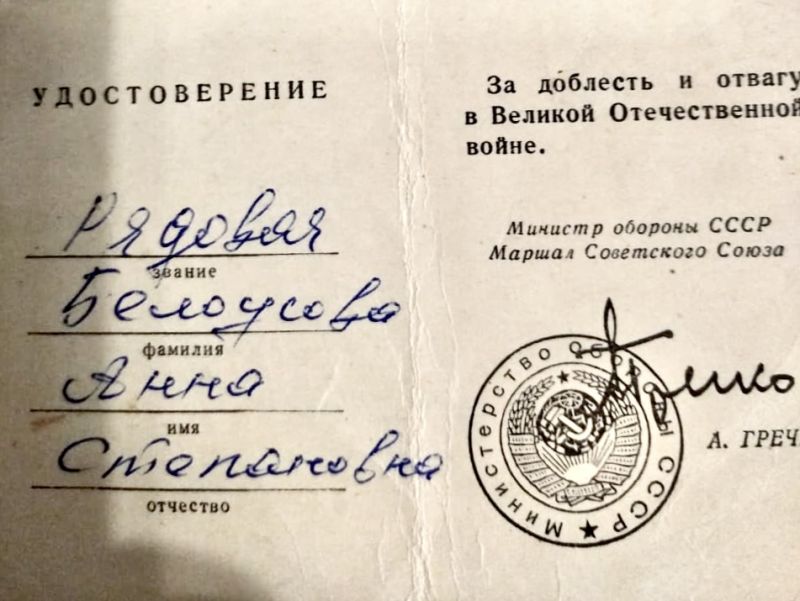 УДОСТОВЕРЕНИЕ
Рядовая
звание
Белоусова
фамилия
Анна
имя
Степановна
отчество
За доблесть и отвагу
в Великой Отечественной
войне.
Министр обороны СССР
Маршал Советского Союза
Министерство Обороны СССР
А. ГРЕЧ